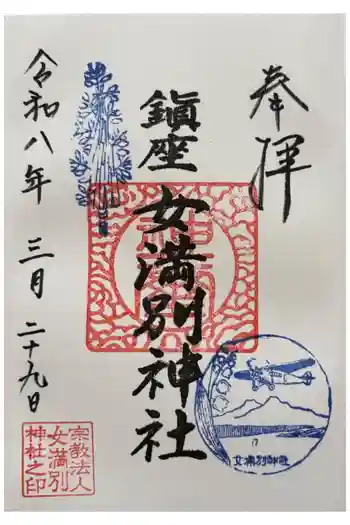 奉拝
鎭座
女満別神社
令和八年 三月 二十九日
宗教法人
女満別
神社之印
女満別神社